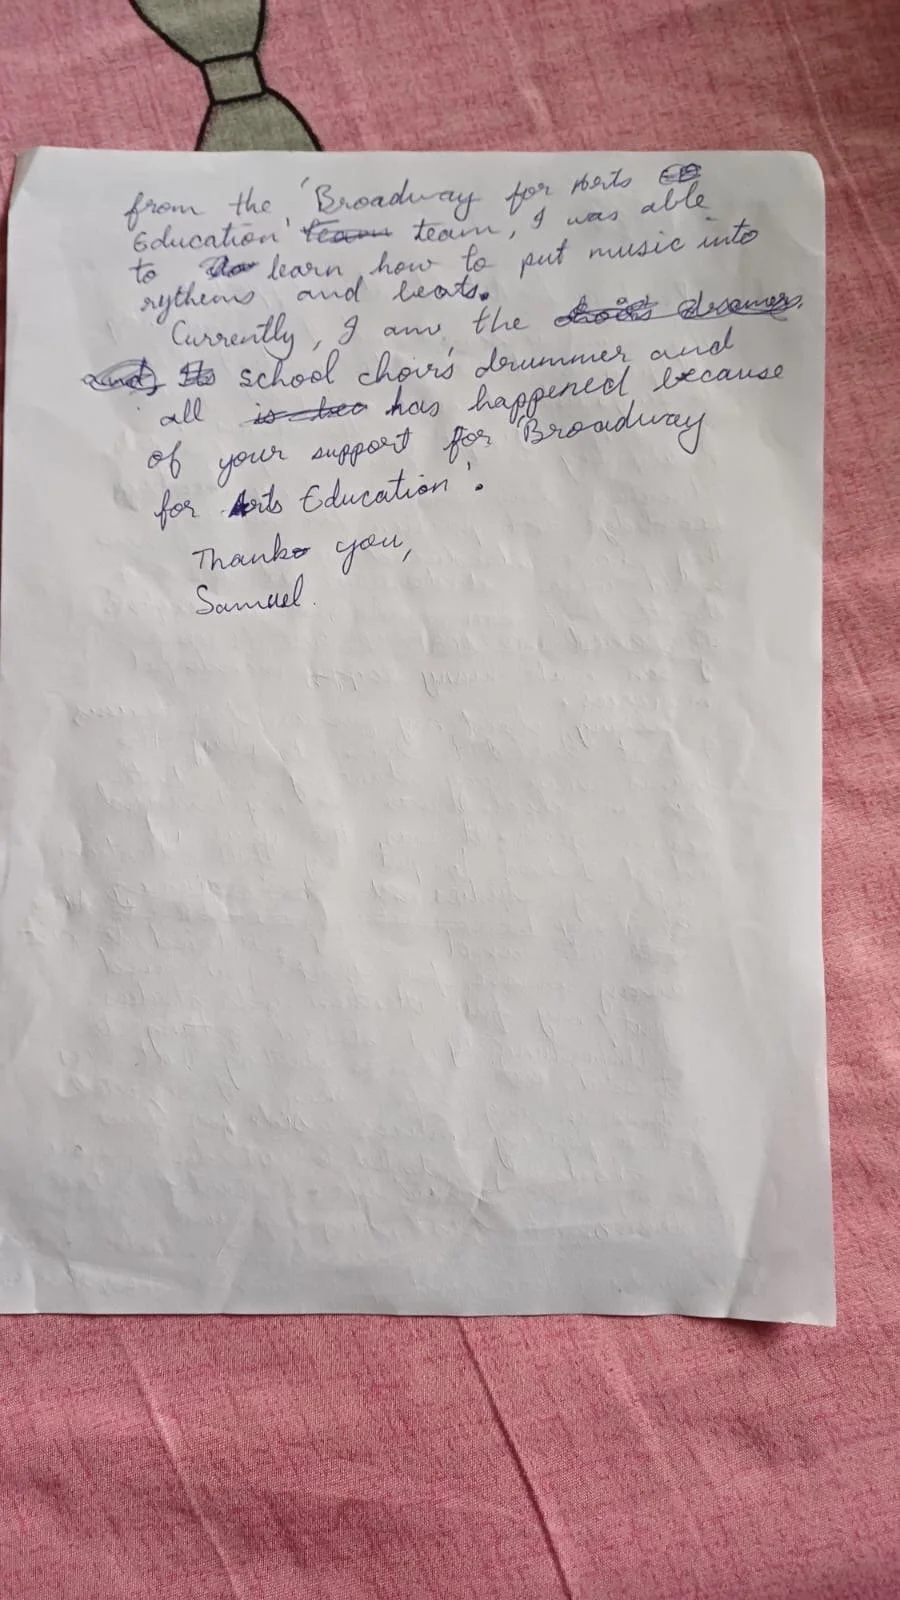 from the 'Broadway for Arts
Education' team team, I was able
to learn how to put music into
rythems and beats.
Currently, I am the choir's drummer
and, school choir's drummer and
all is has happened because
of your support for 'Broadway
for Arts Education'.
Thank you,
Samuel.